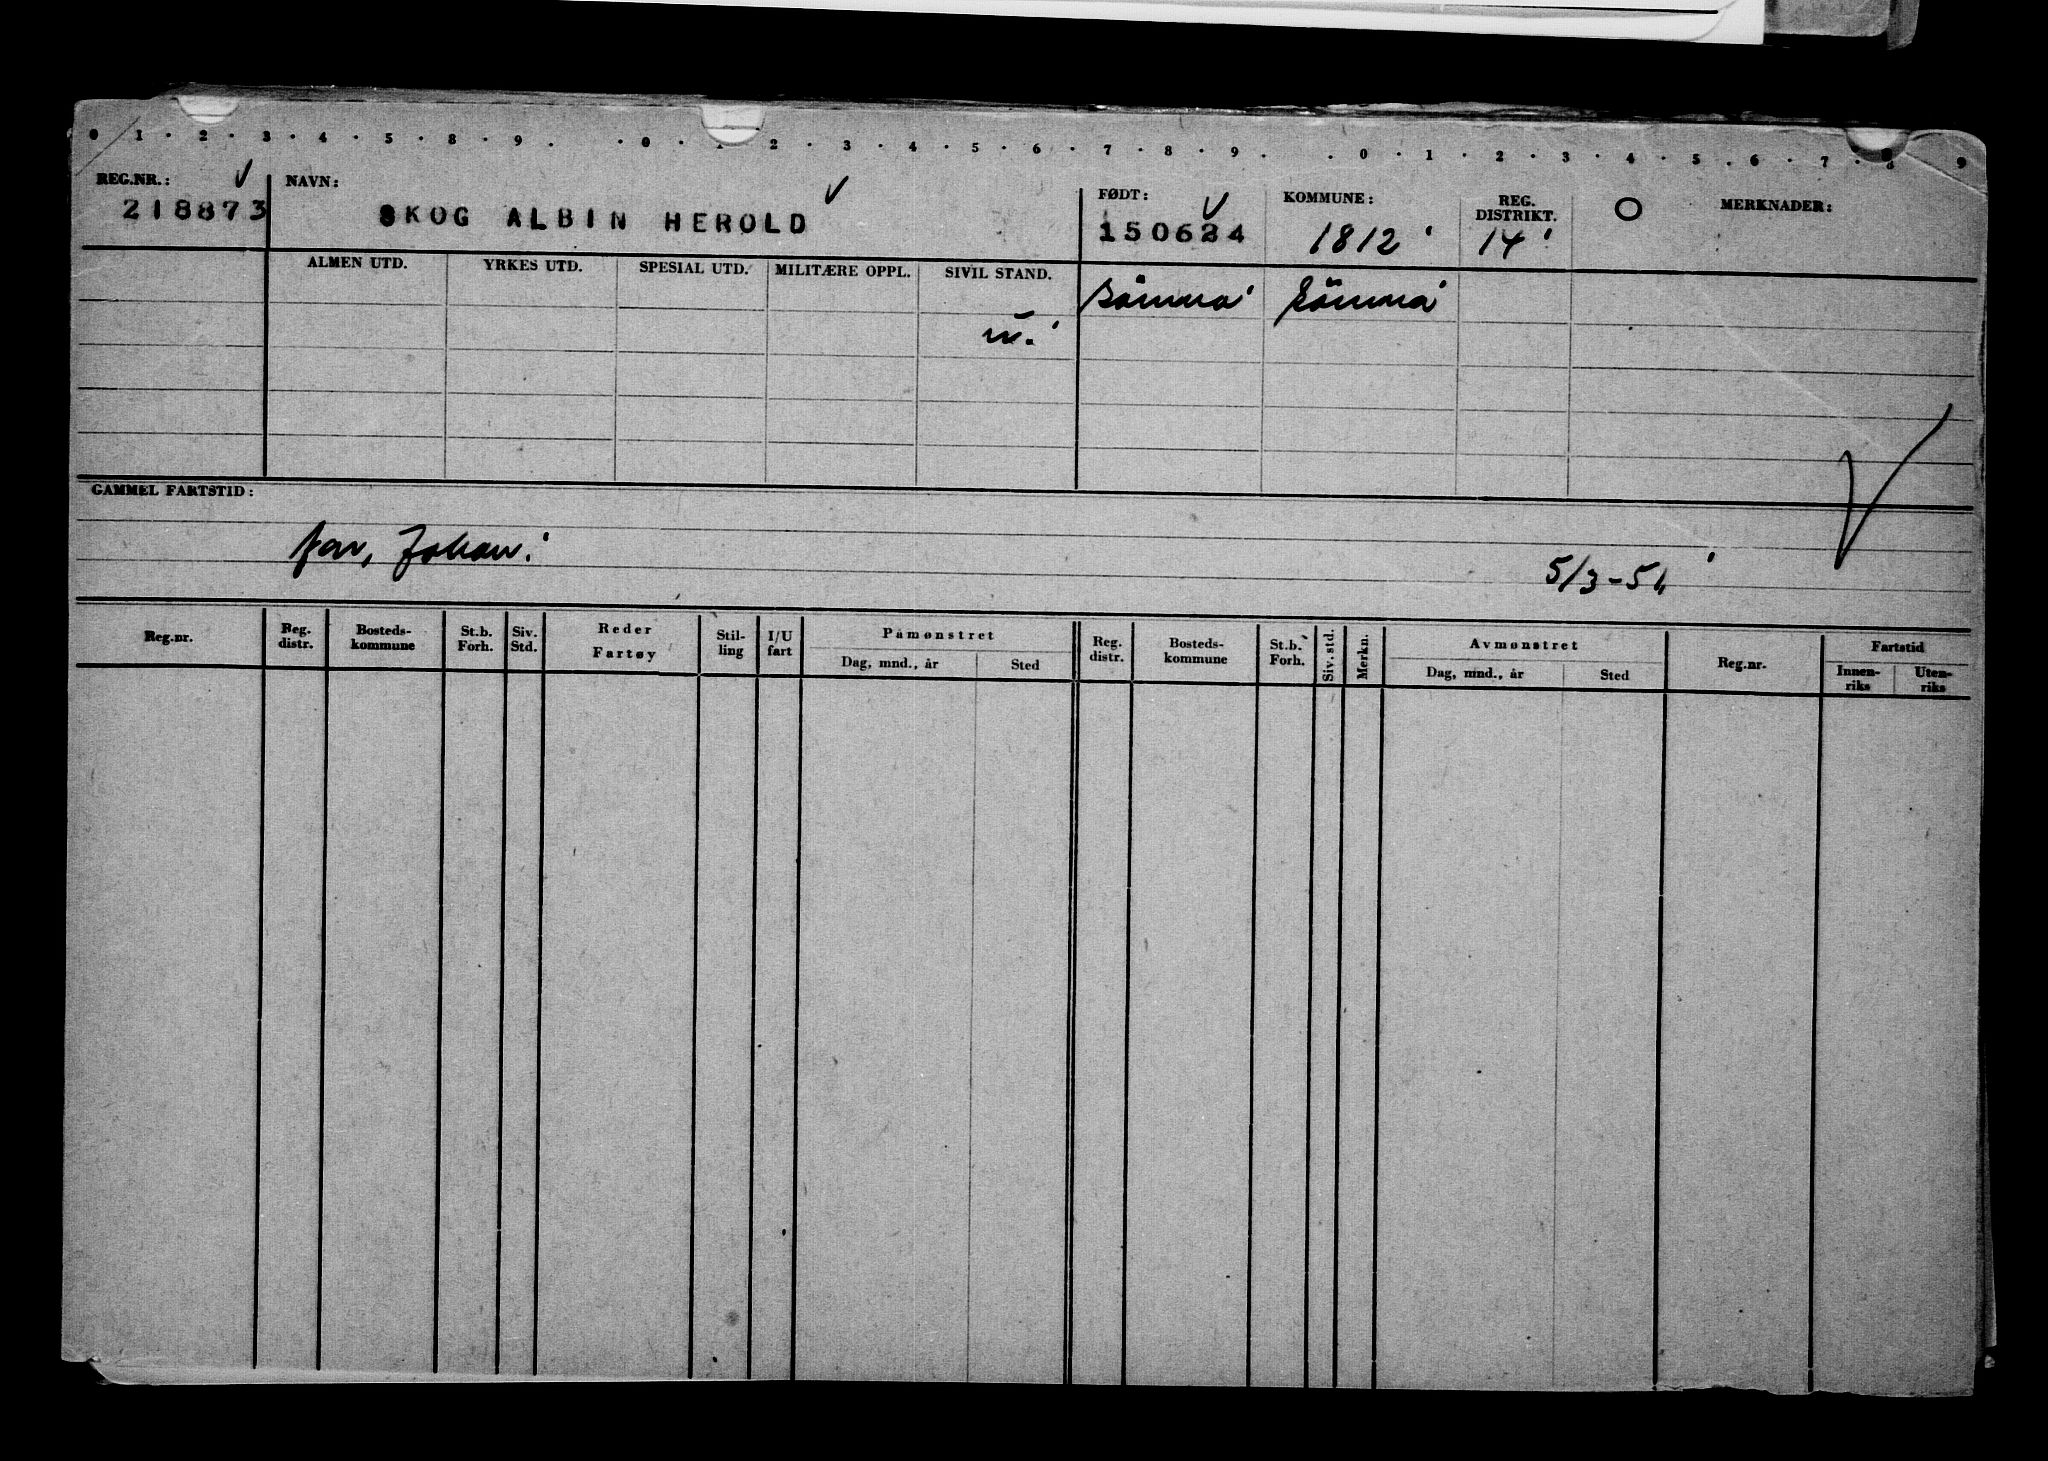 0 1 · 2 · 3 · 4 · 5 · 8 · 9 · · 0 · 1 · 2 · 3 · 4 · 5 · 6 · 7 · 8 · 9 · · 0 · 1 · 2 · 3 · 4 · 5 · 6 · 7 · 8 · 9
REG.NR.: NAVN: FØDT: KOMMUNE: REG. DISTRIKT. O MERKNADER:
218873 SKOG ALBIN HEROLD 150624 1812 14
ALMEN UTD. YRKES UTD. SPESIAL UTD. MILITÆRE OPPL. SIVIL STAND.
Sömna Sömna
u.
GAMMEL FARTSTID:
far, Johan.
5/3-51
Reg.nr. Reg. distr. Bosteds-kommune St.b. Forh. Siv. Std. Reder Fartøy Stil-ling I/U fart Påmønstret Dag, mnd., år Sted Reg. distr. Bosteds-kommune St.b. Forh. Siv. std. Merkn. Avmønstret Dag, mnd., år Sted Reg.nr. Fartstid Innen-riks Uten-riks